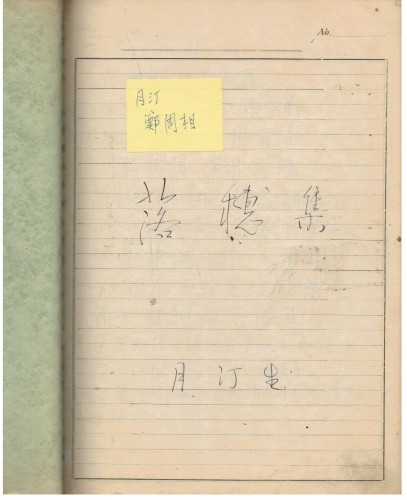 No.
月汀
鄭周相
落穗集
月汀生